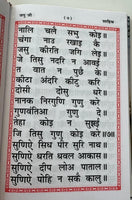 जपु जी (७) साहिब
नालि चलै सभु कोइ ॥
चंगा नाउ रखाइ कै
जसु कीरति जगि लेइ ॥
जे तिसु नदरि न आवई
त वात न पुछै के ॥
कीटा अंदरि कीटु करि
दोसी दोसु धरे ॥
नानक निरगुणि गुणु करे
गुणवंतिआ गुणु दे ॥
तेहा कोइ न सुझई
जि तिसु गुणु कोइ करे॥
सुणिऐ सिध पीर सुरि नाथ॥
सुणिऐ धरति धवल आकास॥
सुणिऐ दीप लोअ पाताल॥
सुणिऐ पोहि न सकै कालु॥